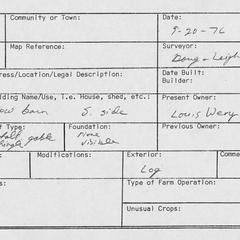 Community or Town:
Date:
9-20-76
Map Reference:
Surveyor:
Doug + Leigh
ress/Location/Legal Description:
Date Built:
Builder:
lding Name/Use, i.e. House, shed, etc.:
Present Owner:
ow barn S. side
Louis Wery
f Type:
Foundation:
Previous Owner:
gable
None
visible
Modifications:
Exterior:
Comme
Log
Type of Farm Operation:
Unusual Crops: